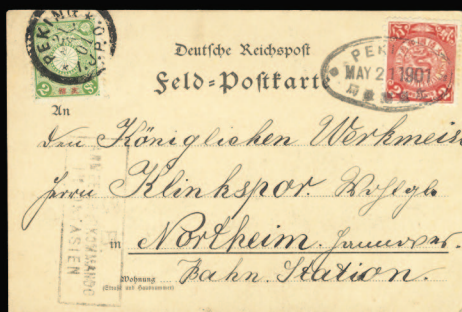 PEKING
I.J.P.O.
2
Deutsche Reichspost
Feld=Postkarte
PEKING
MAY 21 1901
2
An
den Königlichen Werkmeis
Herrn Klinkspor. Wohlgb
in Northeim. Hannover.
Bahn. Station.
Wohnung
(Straße und Hausnummer)
KOMMANDO
ASIEN